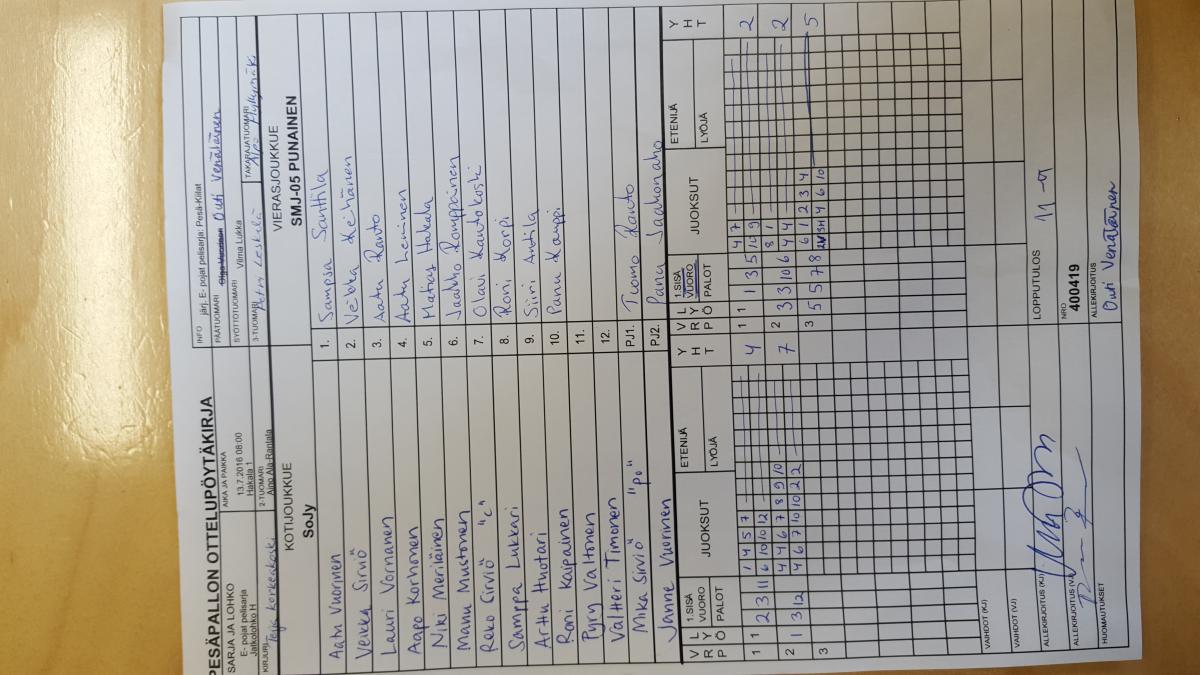 PESÄPALLON OTTELUPÖYTÄKIRJA
SARJA JA LOHKO
E- pojat pelisarja
Jatkolohko H
AIKA JA PAIKKA
13.7.2016 08:00
Hakala 1
INFO järj. E- pojat pelisarja: Pesä-Kiilat
PÄÄTUOMARI Outi Venäläinen
SYÖTTÖTUOMARI Vilma Lukka
KIRJURI Terja Korkeakoski
2-TUOMARI
Aino Ala-Rantala
3-TUOMARI Petru Leskelä
TAKARAJATUOMARI
KOTIJOUKKUE
SoJy
VIERASJOUKKUE
SMJ-05 PUNAINEN
Aatu Vuorinen 1. Sampsa Santtila
Veikka Sirviö 2. Veikka Keihänen
Lauri Vornanen 3. Aatu Rauto
Aapo Korhonen 4. Aatu Leminen
Niki Meriläinen 5. Matias Hakala
Manu Mustonen 6. Jaakko Romppainen
Reko Cirviö "c" 7. Olavi Kantokoski
Samppa Lukkari 8. Roni Korpi
Arttu Huotari 9. Siiri Antila
Roni Kaipainen 10. Panu Kamppi
Pyry Valtonen 11.
Valtteri Timonen 12.
Mika Sirviö "po" PJ1. Tuomo Rauto
Janne Vuorinen PJ2. Panu Jaakonaho
V R P L Y Ö 1.SISÄ VUORO PALOT JUOKSUT ETENIJÄ LYÖJÄ Y H T
V R P L Y Ö 1.SISÄ VUORO PALOT JUOKSUT ETENIJÄ LYÖJÄ Y H T
1 1 2 3 11 1 4 5 7 4 1 1 1 3 5 4 7 2
6 10 10 12 10 9
2 1 3 12 4 4 6 7 8 9 10 7 2 3 3 10 6 8 1 2
4 6 7 10 10 2 2 4 4
3 3 5 5 7 8 6 1 2 3 4 5
4 6 10
VAIHDOT (KJ)
VAIHDOT (VJ)
ALLEKIRJOITUS (KJ)
LOPPUTULOS 11-9
ALLEKIRJOITUS (VJ)
NRO
400419
HUOMAUTUKSET
ALLEKIRJOITUS
Outi Venäläinen